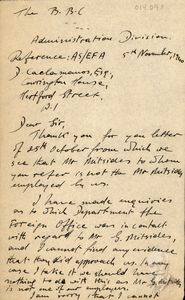 The B.B.C
Administration Division.
Reference: AS/EFA 5th November, 1940
D. Caclamanos, Esq.,
House,
Hertford Street,
W.1
Dear Sir,
Thank you for you letter
of 25th October from which we
see that Mr Mitsides to whom
you refer is not the Mr Mitsides
employed by us.
I have made enquiries
as to which Department the
Foreign Office was in contact
with regard to Mr G. Mitsides,
and I cannot find any evidence
that they did approach us. In any
case I take it we should have
nothing to do with this as Mr G. Mitsides
is not in our employ.
I am sorry that I cannot